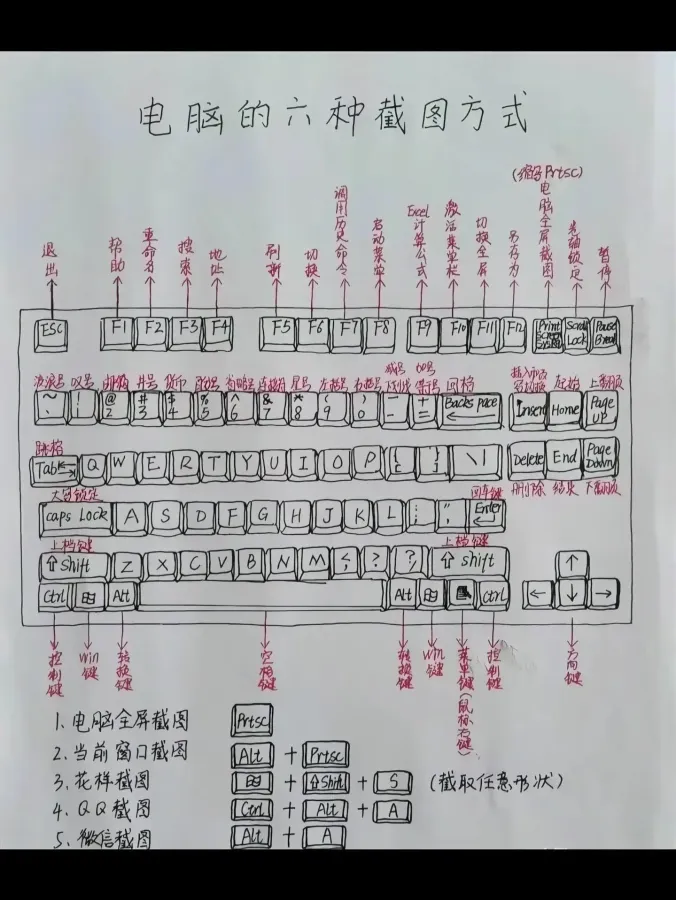 电脑的六种截图方式
(缩写Prtsc)
退出
帮助
重命名
搜索
地址
刷新
切换
调用历史命令
启动菜单
Excel计算公式
激活菜单栏
切换全屏
另存为
电脑全屏截图
光标锁定
暂停
ESC F1 F2 F3 F4 F5 F6 F7 F8 F9 F10 F11 F12 Print Screen SysRq Scroll Lock Pause Break
波浪号 叹号 邮箱 井号 货币 百分号 省略号 连接符 星号 左括号 右括号 减号 下划线 加号 等号 回格 插入/改写切换 起始 上翻页
~ ` ! 1 @ 2 # 3 $ 4 % 5 ^ 6 & 7 * 8 ( 9 ) 0 - - + = Backspace Insert Home Page UP
跳格
Tab Q W E R T Y U I O P { [ } ] \ | Delete End Page Down
大写锁定 回车键 删除 结束 下翻页
caps Lock A S D F G H J K L : ; " ' Enter
上档键 上档键
⇧ shift Z X C V B N M < , ? ? , ⇧ shift ↑
Ctrl 田 Alt Alt 田 Ctrl ← ↓ →
控制键
Win键
转换键
空格键
转换键
Win键
菜单键(鼠标右键)
控制键
方向键
1. 电脑全屏截图 Prtsc
2. 当前窗口截图 Alt + Prtsc
3. 花样截图 田 + ⇧Shift + S (截取任意形状)
4. QQ截图 Ctrl + Alt + A
5. 微信截图 Alt + A